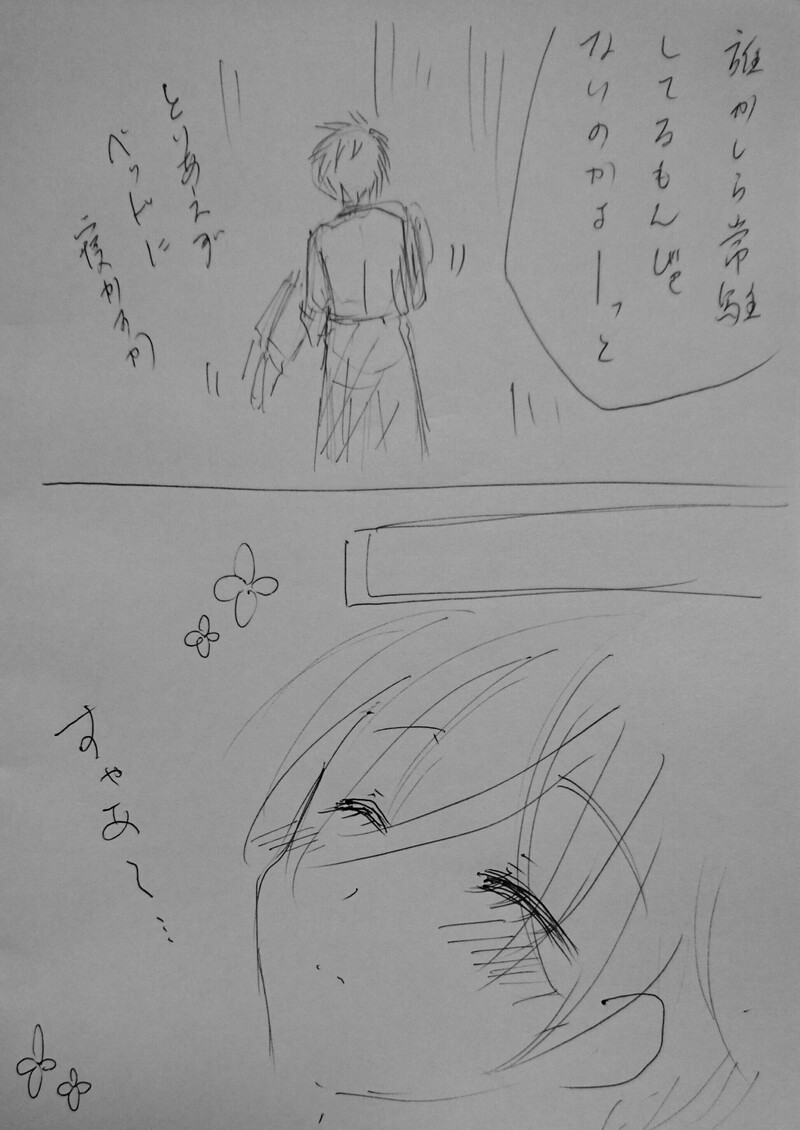 誰かしら常駐
してるもんじゃ
ないのかよーっと
とりあえず
ベッドに
寝かすか
すやあ〜…